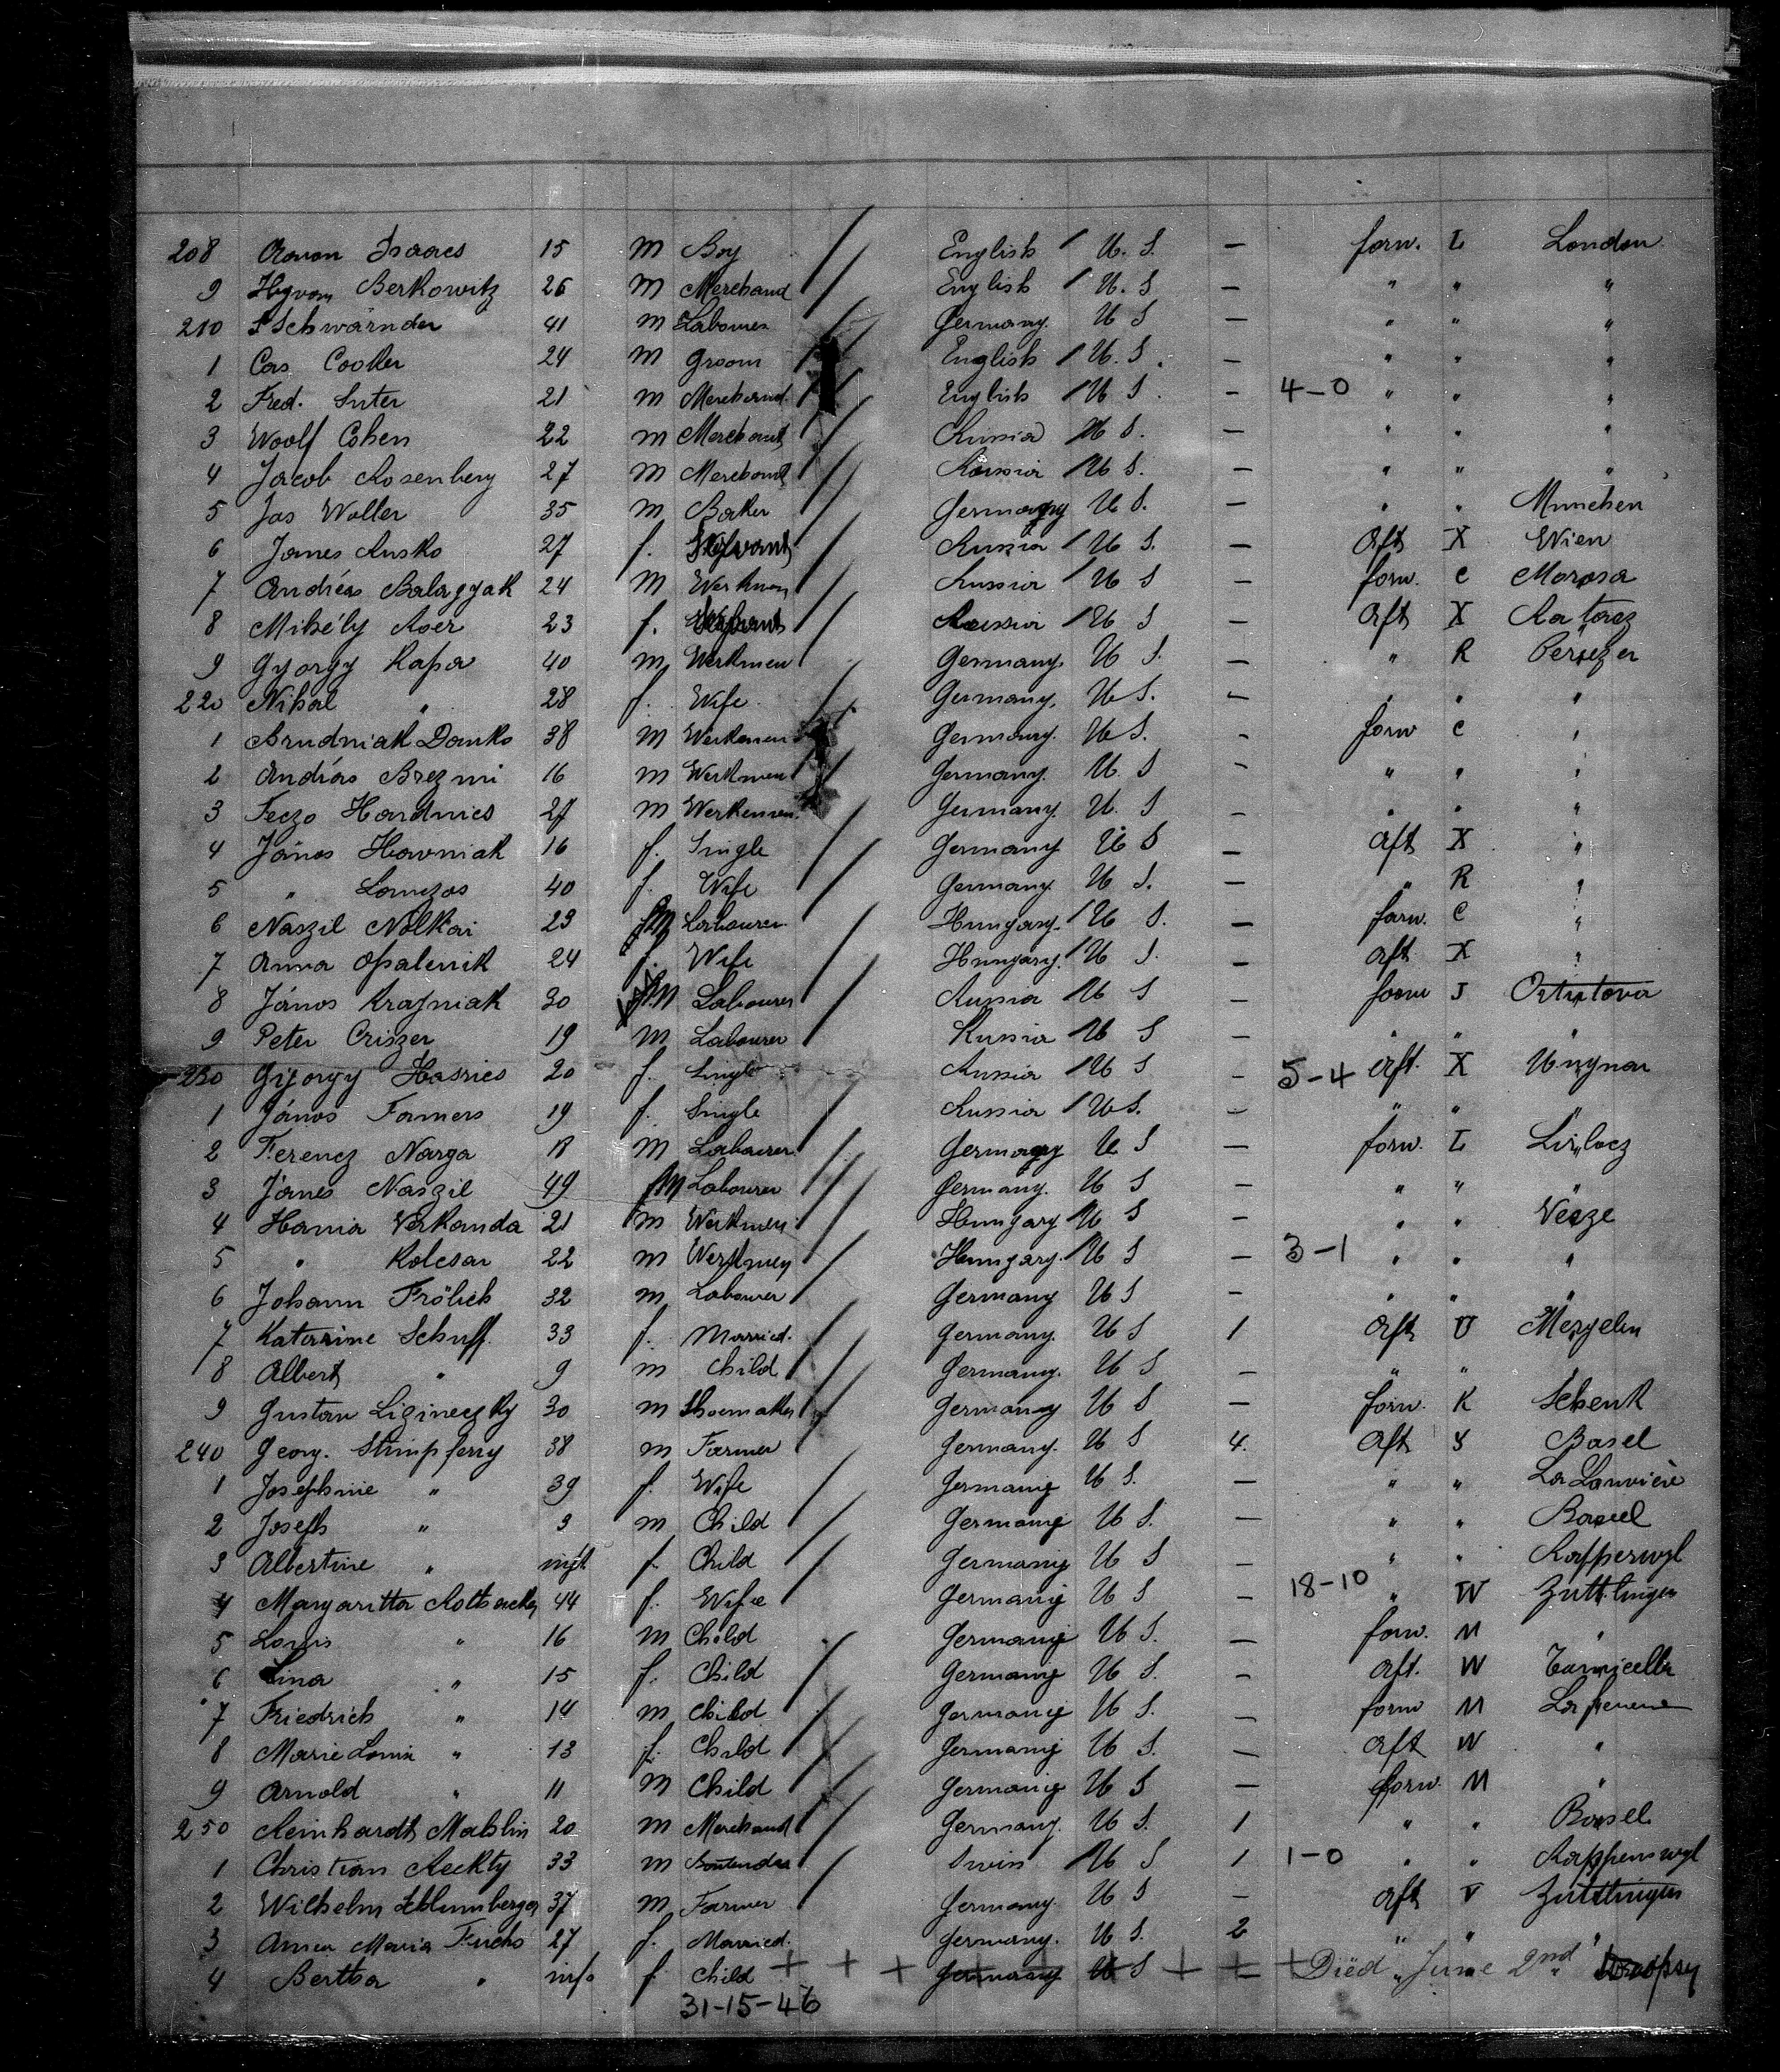 208 Aaron Isaacs 15 m Boy English U. S. — forw. L London
9 Hyvom Berkowitz 26 m Merchand English U. S — " " "
210 Schwärnder 41 m Labourer Germany. U S — " " "
1 Cas Cooker 24 m Groom English U. S. — " " "
2 Fred. Suter 21 m Merchand. English U S. — 4-0 " " "
3 Woolf Cohen 22 m Merchant Russia U S. — " " "
4 Jacob Rosenberg 27 m Merchant Russia U S. — " " "
5 Jas Woller 35 m Baker Germany U S. — " " Munchen
6 Janes Rusko 27 f. Servant Russia U S. — Aft X Wien
7 András Balagyak 24 m Werkman Russia U S — forw. C Morosa
8 Mihély Roer 23 f. Servant Russia U S — Aft X
9 György Kapa 40 m Werkmen Germany. U S. — " R
220 Nihal " 28 f. Wife Germany. U S. — " " "
1 Brudniak Danko 38 m Werkmen Germany. U S. - forw C "
2 András Brezmi 16 m Werkmen Germany. U. S - " " "
3 Feczo Hardnics 27 m Werkemen. Germany. U. S - " " "
4 János Havniak 16 f. Single Germany U S — Aft X "
5 " 40 f. Wife Germany U S. — " R "
6 Naszil Nolkai 29 m Labourer Hungary. U S. — forw. C "
7 Anna Opalenik 24 f. Wife Hungary. U S. — Aft X "
8 János Krajniak 30 m Labourer Russia U S — forw J
9 Peter Criszer 19 m Labourer Russia U S — " " "
230 György Hasrics 20 f. Single Russia U S — 5-4 Aft. X Ungnar
1 János Famers 19 f. Single Russia U S. — " " "
2 Ferencz Narga 18 m Labourer Germany U S — forw. L
3 János Naszil 49 m Labourer Germany. U S — " " "
4 Hania Verkanda 21 m Werkmen Hungary U S — " " Vecze
5 " Kolesar 22 m Werkmen Hungary. U S — 3-1 " " "
6 Johann Frölich 32 m Labourer Germany U S — " " "
7 Katarine Schuff. 33 f. Married. Germany. U S 1 Aft U
8 Albert " 9 m Child Germany. U S — " " "
9 Gustav Ligineczky 30 m Shoemaker Germany U S — forw. K Schenk
240 Georg. Stumpferry 38 m Farmer Germany. U S 4. Aft Y Basel
1 Josephine " 39 f. Wife Germanig U S. — " " La Louvière
2 Joseph " 9 m Child Germanig U S. — " " Basel
3 Albertine " f. Child Germanig U S — " " Rapperwyl
4 Margaritta 44 f. Wife Germanig U S — 18-10 " W Zuttlingen
5 Louis " 16 m Child Germanig U S. — forw. M "
6 Lina " 15 f. Child Germanig U S. — Aft. W
7 Friedrich " 14 m Child Germanig U S. — forw M
8 Marie Louis " 13 f. Child Germanig U S. — Aft W "
9 Arnold " 11 m Child Germanig U S — forw. M "
250 Reinhardt Mablin 20 m Merchand Germany. U S. 1 " " Basel
1 Christian Reckty 33 m Swiss U S 1 1-0 " " Rappenswyl
2 Wilhelm Schlumberger 37 m Farmer Germany. U S — Aft V Zuttlingen
3 Anna Maria Fuchs 27 f. Married. Germany. U S. 2 " " "
4 Bertha " inf. f. Child + + + Germany U S + + + Died June 2nd Dropsy
31-15-46